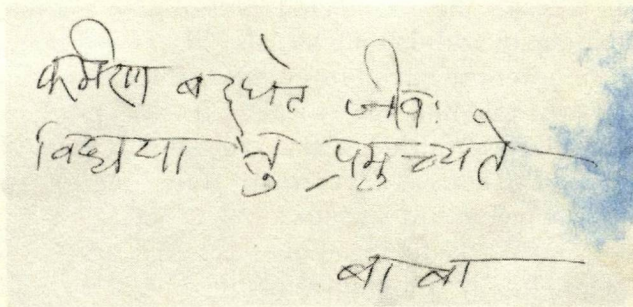 कर्मणा बद्ध्येत जीवः
विद्यया तु प्रमुच्यते
बाबा